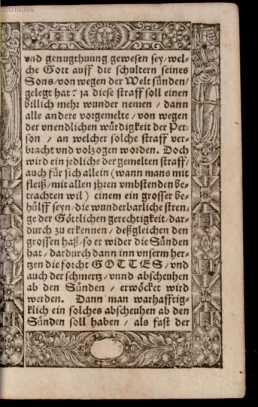 vnd genugthuung gewesen sey / wel-
che Gott auff die schultern seines
Sons / von wegen der Welt sünden /
gelegt hat: ja diese straff soll einen
billich mehr wunder nemen / dann
alle andere vorgemelte / von wegen
der vnendlichen würdigkeit der Per-
son / an welcher solche straff ver-
bracht vnd volzogen worden. Doch
wird ein jedliche der gemelten straff /
auch für sich allein (wann mans mit
fleiß / mit allen jhren vmbstenden be-
trachten wil) einem ein grosser be-
hülff seyn / die wunderbarliche stren-
ge der Göttlichen gerechtigkeit / dar-
durch zu erkennen / deßgleichen den
grossen haß / so er wider die Sünden
hat / dardurch dann inn vnserm her-
tzen die forcht GOTTES / vnd
auch der schmertz / vnnd abscheuhen
ab den Sünden / erwöcket wird
werden. Dann man warhafftig-
klich ein solches abscheuhen ab den
Sünden soll haben / als fast der